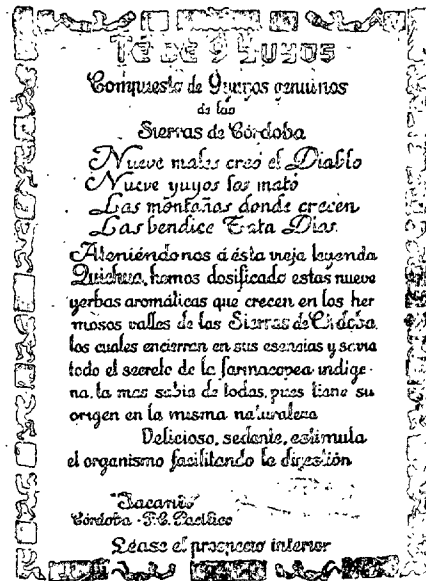 TÉ DE 9 YUYOS
Compuesto de 9 yuyos genuinos
de las
Sierras de Córdoba
Nueve males creó el Diablo
Nueve yuyos los mató
Las móntañas donde crecen
Las bendice Tata Dios.
Ateniéndonos á ésta vieja leyenda
Quichua, hemos dosificado estas nueve
yerbas aromáticas que crecen en los her
mosos valles de las Sierras de Córdoba,
los cuales encierran en sus esencias y savia
todo el secreto de la farmacopea indige-
na, la mas sabia de todas, pues tiene su
origen en la misma naturaleza
Delicioso, sedante, estimula
el organismo facilitando la digestión
"Sacanta"
Córdoba - F.C. Pacífico
Léase el prospecto interior